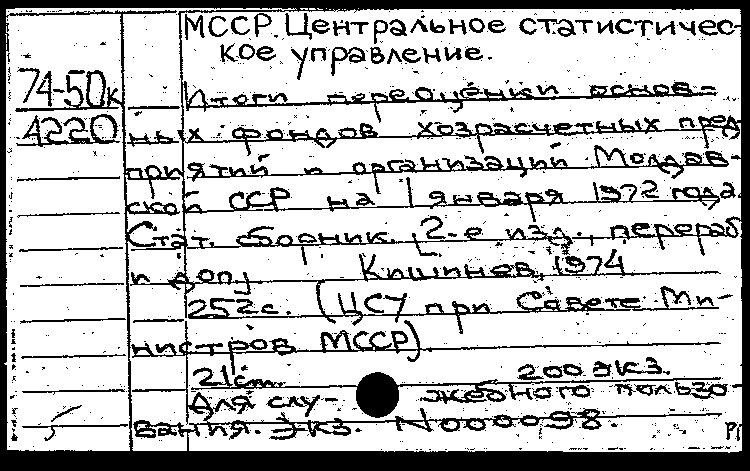 МССР. Центральное статистичес-
кое управление.
74-50к
Итоги переоценки основ-
4220
ных фондов хозрасчетных пред
приятий и организаций Молдав-
ской ССР на 1 января 1972 года.
Стат. сборник. [2-е изд., перераб
и доп.] Кишинев, 1974
252с. (ЦСУ при Совете Ми-
нистров МССР).
21см. 200 экз.
Для слу- жебного пользо-
вания. Экз. N000098.